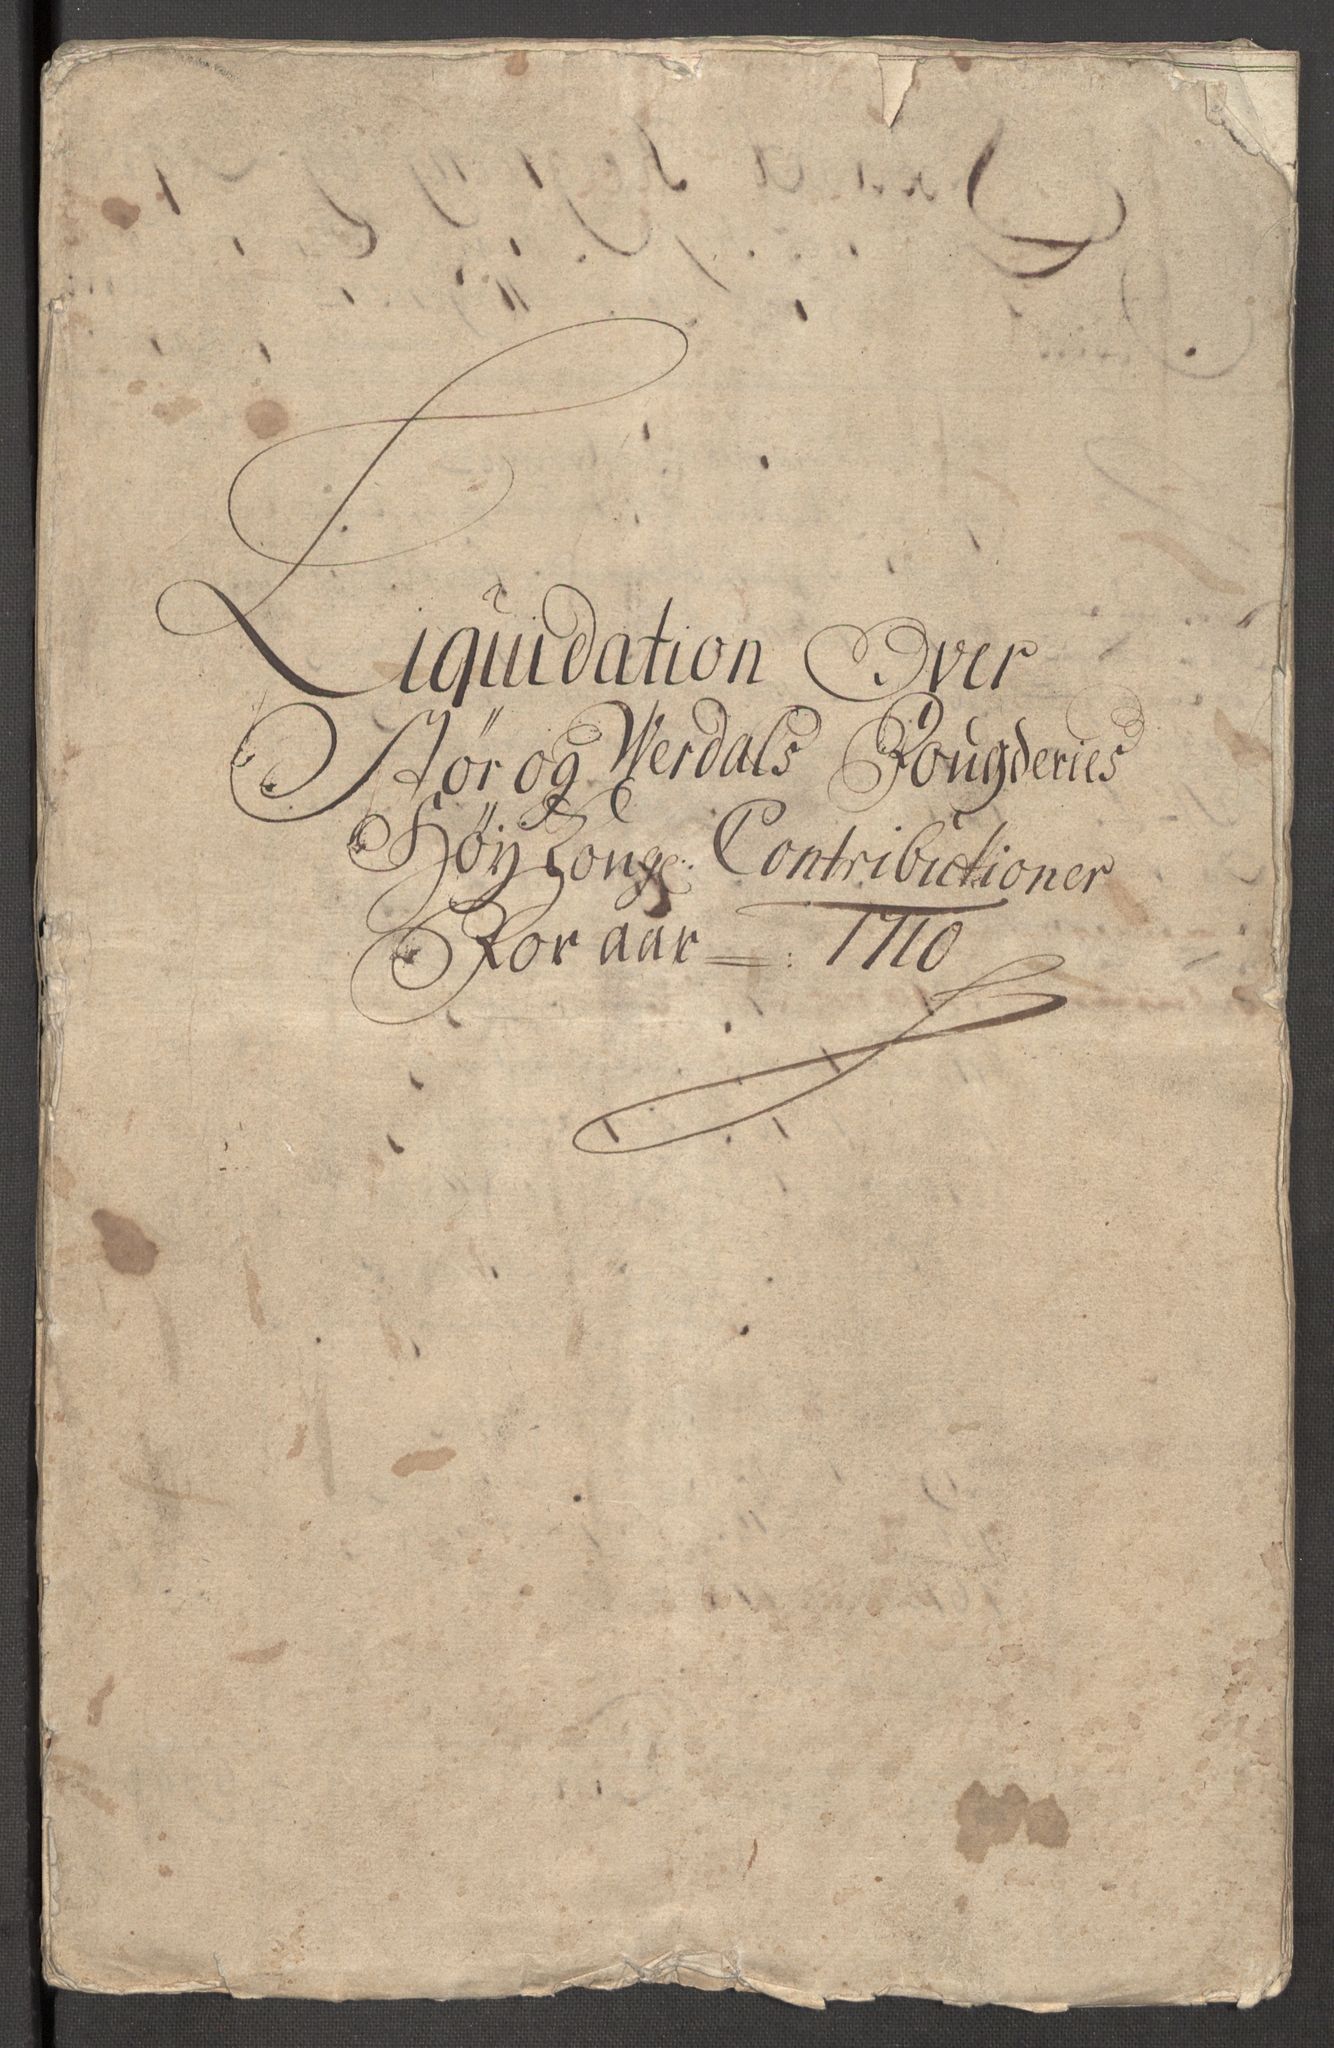 Liquidation Over
Stør og Werdals Fougderies
Høy Kongl: Contributioner
For aar 1710